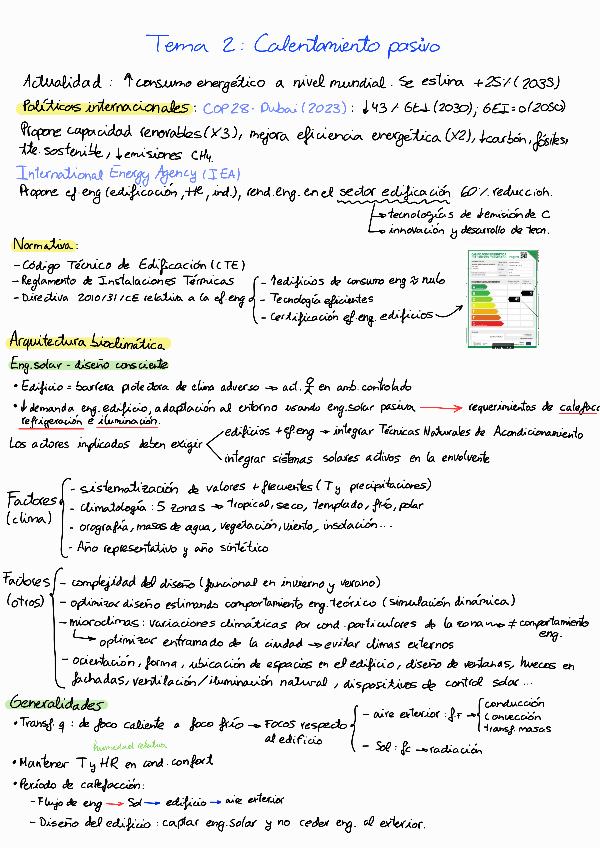 Tema 2: Calentamiento pasivo
Actualidad: ↑consumo energético a nivel mundial. Se estima +25% (2035)
Políticas internacionales: COP28 · Dubai (2023): ↓43% GEI (2030); GEI=0 (2050)
Propone capacidad renovables (x3), mejora eficiencia energética (x2), ↓carbón, fósiles,
tte. sostenible, ↓emisiones CH4.
International Energy Agency (IEA)
Propone ef eng (edificación, tte, ind.), rend. eng. en el sector edificación 60% reducción.
→ tecnologías de ↓emisión de C
→ innovación y desarrollo de tecn.
Normativa:
- Código Técnico de Edificación (CTE)
- Reglamento de Instalaciones Térmicas
- Directiva 2010/31/CE relativa a la ef eng
- ↑edificios de consumo eng ≈ nulo
- Tecnología eficientes
- Certificación ef. eng. edificios
Arquitectura bioclimática
Eng. solar - diseño consciente
• Edificio = barrera protectora de clima adverso → act. en amb. controlado
• ↓demanda eng. edificio, adaptación al entorno usando eng. solar pasiva → requerimientos de calefacc
refrigeración e iluminación.
Los actores implicados deben exigir
edificios + ef eng → integrar Técnicas Naturales de Acondicionamiento
integrar sistemas solares activos en la envolvente
Factores (clima)
- sistematización de valores + frecuentes (T y precipitaciones)
- climatología: 5 zonas → tropical, seco, templado, frío, polar
- orografía, masas de agua, vegetación, viento, insolación...
- Año representativo y año sintético
Factores (otros)
- complejidad del diseño (funcional en invierno y verano)
- optimizar diseño estimando comportamiento eng. teórico (simulación dinámica)
- microclimas: variaciones climáticas por cond. particulares de la zona → ≠ comportamiento eng.
→ optimizar entramado de la ciudad → evitar climas externos
- orientación, forma, ubicación de espacios en el edificio, diseño de ventanas, huecos en
fachadas, ventilación/iluminación natural, dispositivos de control solar...
Generalidades
• Transf. q: de foco caliente a foco frío → Focos respecto al edificio
- aire exterior: fF → conducción
convección
transf. masas
- Sol: fc → radiación
humedad relativa
• Mantener T y HR en cond. confort
• Período de calefacción:
- Flujo de eng → Sol → edificio → aire exterior
- Diseño del edificio: captar eng. solar y no ceder eng. al exterior.